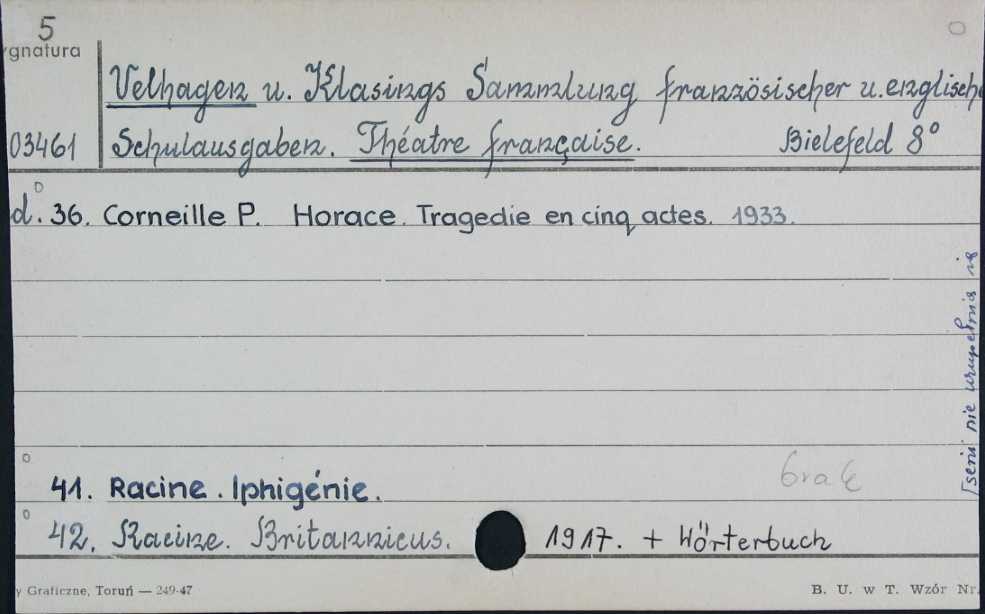 5
ygnatura
Velhagen u. Klasings Sammlung französischer u. englische
03461 Schulausgaben. Théatre française. Bielefeld 8°
d. 36. Corneille P. Horace. Tragedie en cinq actes. 1933.
[serii nie uzupełnia się
41. Racine. Iphigénie. brak
42. Racine. Britannicus. 1917. + Wörterbuch
y Graficzne, Toruń — 249-47 B. U. w T. Wzór Nr.